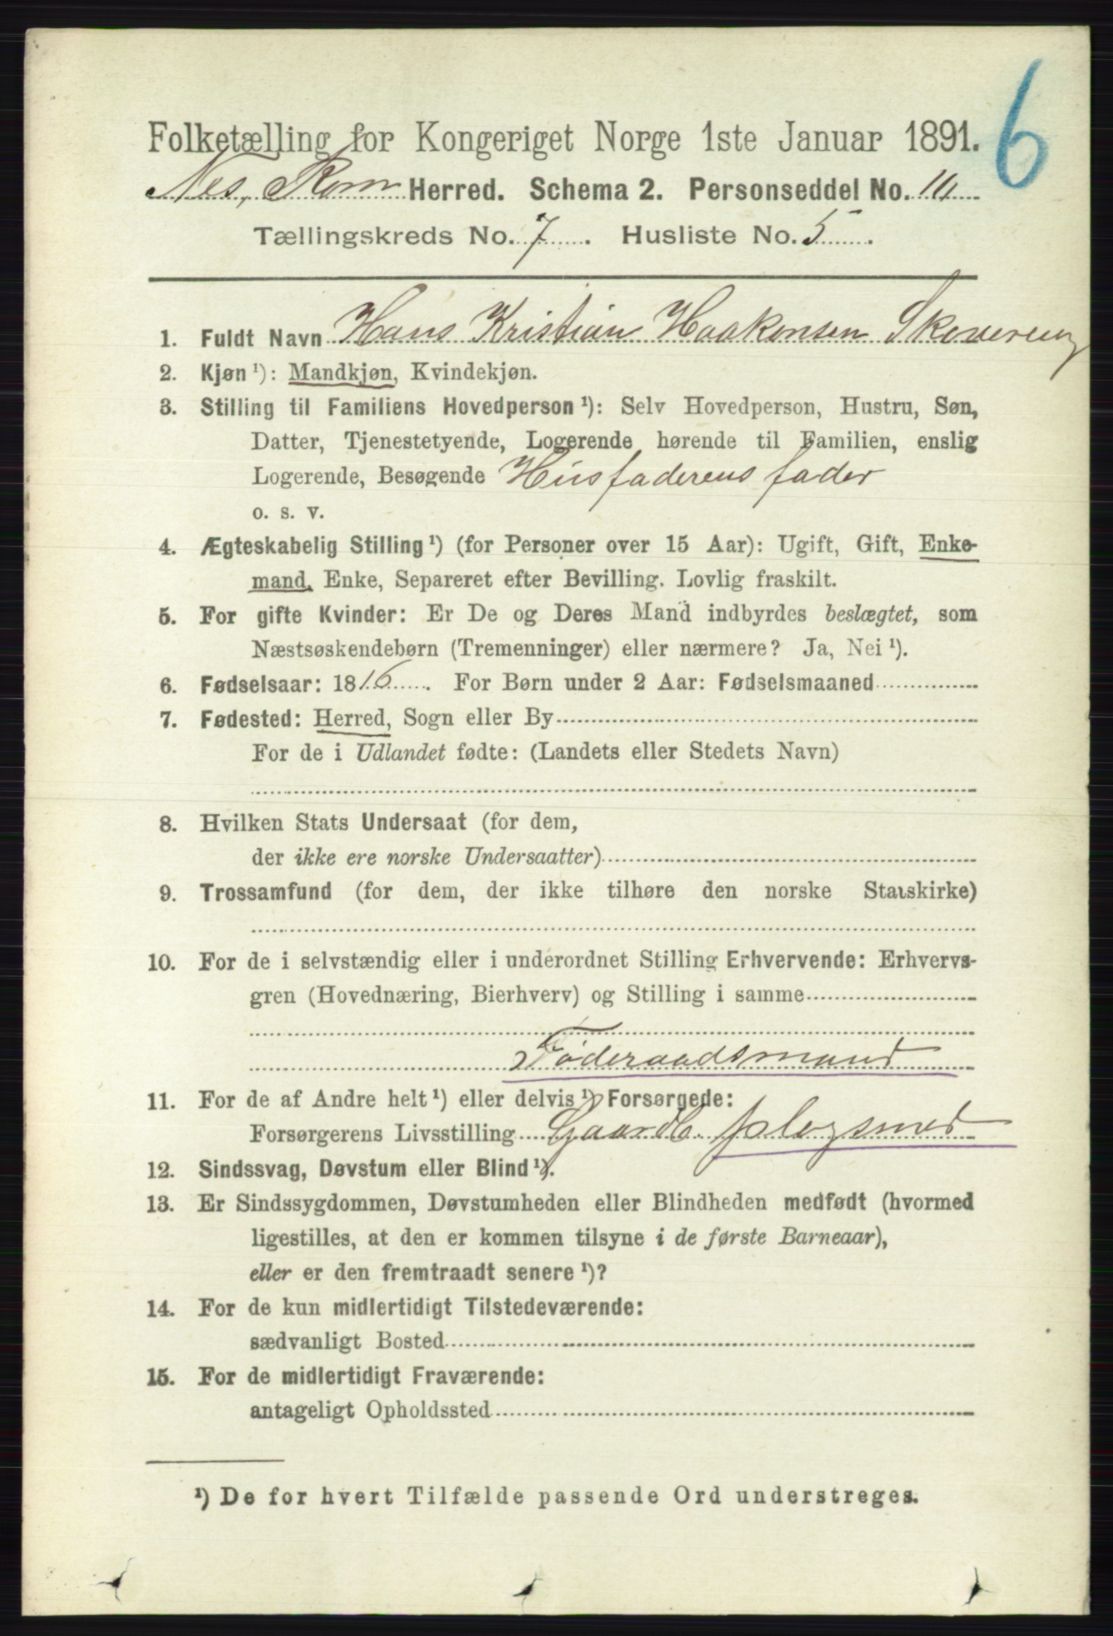 6
Folketælling for Kongeriget Norge 1ste Januar 1891.
Nes, Rom Herred. Schema 2. Personseddel No.
Tællingskreds No. 7. Husliste No. 5.
1. Fuldt Navn Hans Kristian Haakensen Skovereng
2. Kjøn ¹): Mandkjøn, Kvindekjøn.
3. Stilling til Familiens Hovedperson ¹): Selv Hovedperson, Hustru, Søn,
Datter, Tjenestetyende, Logerende hørende til Familien, enslig
Logerende, Besøgende Husfaderens fader
o. s. v.
4. Ægteskabelig Stilling ¹) (for Personer over 15 Aar): Ugift, Gift, Enke-
mand, Enke, Separeret efter Bevilling. Lovlig fraskilt.
5. For gifte Kvinder: Er De og Deres Mand indbyrdes beslægtet, som
Næstsøskendebørn (Tremenninger) eller nærmere? Ja, Nei ¹).
6. Fødselsaar: 1816. For Børn under 2 Aar: Fødselsmaaned
7. Fødested: Herred, Sogn eller By
For de i Udlandet fødte: (Landets eller Stedets Navn)
8. Hvilken Stats Undersaat (for dem,
der ikke ere norske Undersaatter)
9. Trossamfund (for dem, der ikke tilhøre den norske Statskirke)
10. For de i selvstændig eller i underordnet Stilling Erhvervende: Erhvervs-
gren (Hovednæring, Bierhverv) og Stilling i samme
Føderaadsmand
11. For de af Andre helt ¹) eller delvis ¹) Forsørgede:
Forsørgerens Livsstilling Gaardb. plogsmed
12. Sindssvag, Døvstum eller Blind ¹).
13. Er Sindssygdommen, Døvstumheden eller Blindheden medfødt (hvormed
ligestilles, at den er kommen tilsyne i de første Barneaar),
eller er den fremtraadt senere ¹)?
14. For de kun midlertidigt Tilstedeværende:
sædvanligt Bosted
15. For de midlertidigt Fraværende:
antageligt Opholdssted
¹) De for hvert Tilfælde passende Ord understreges.